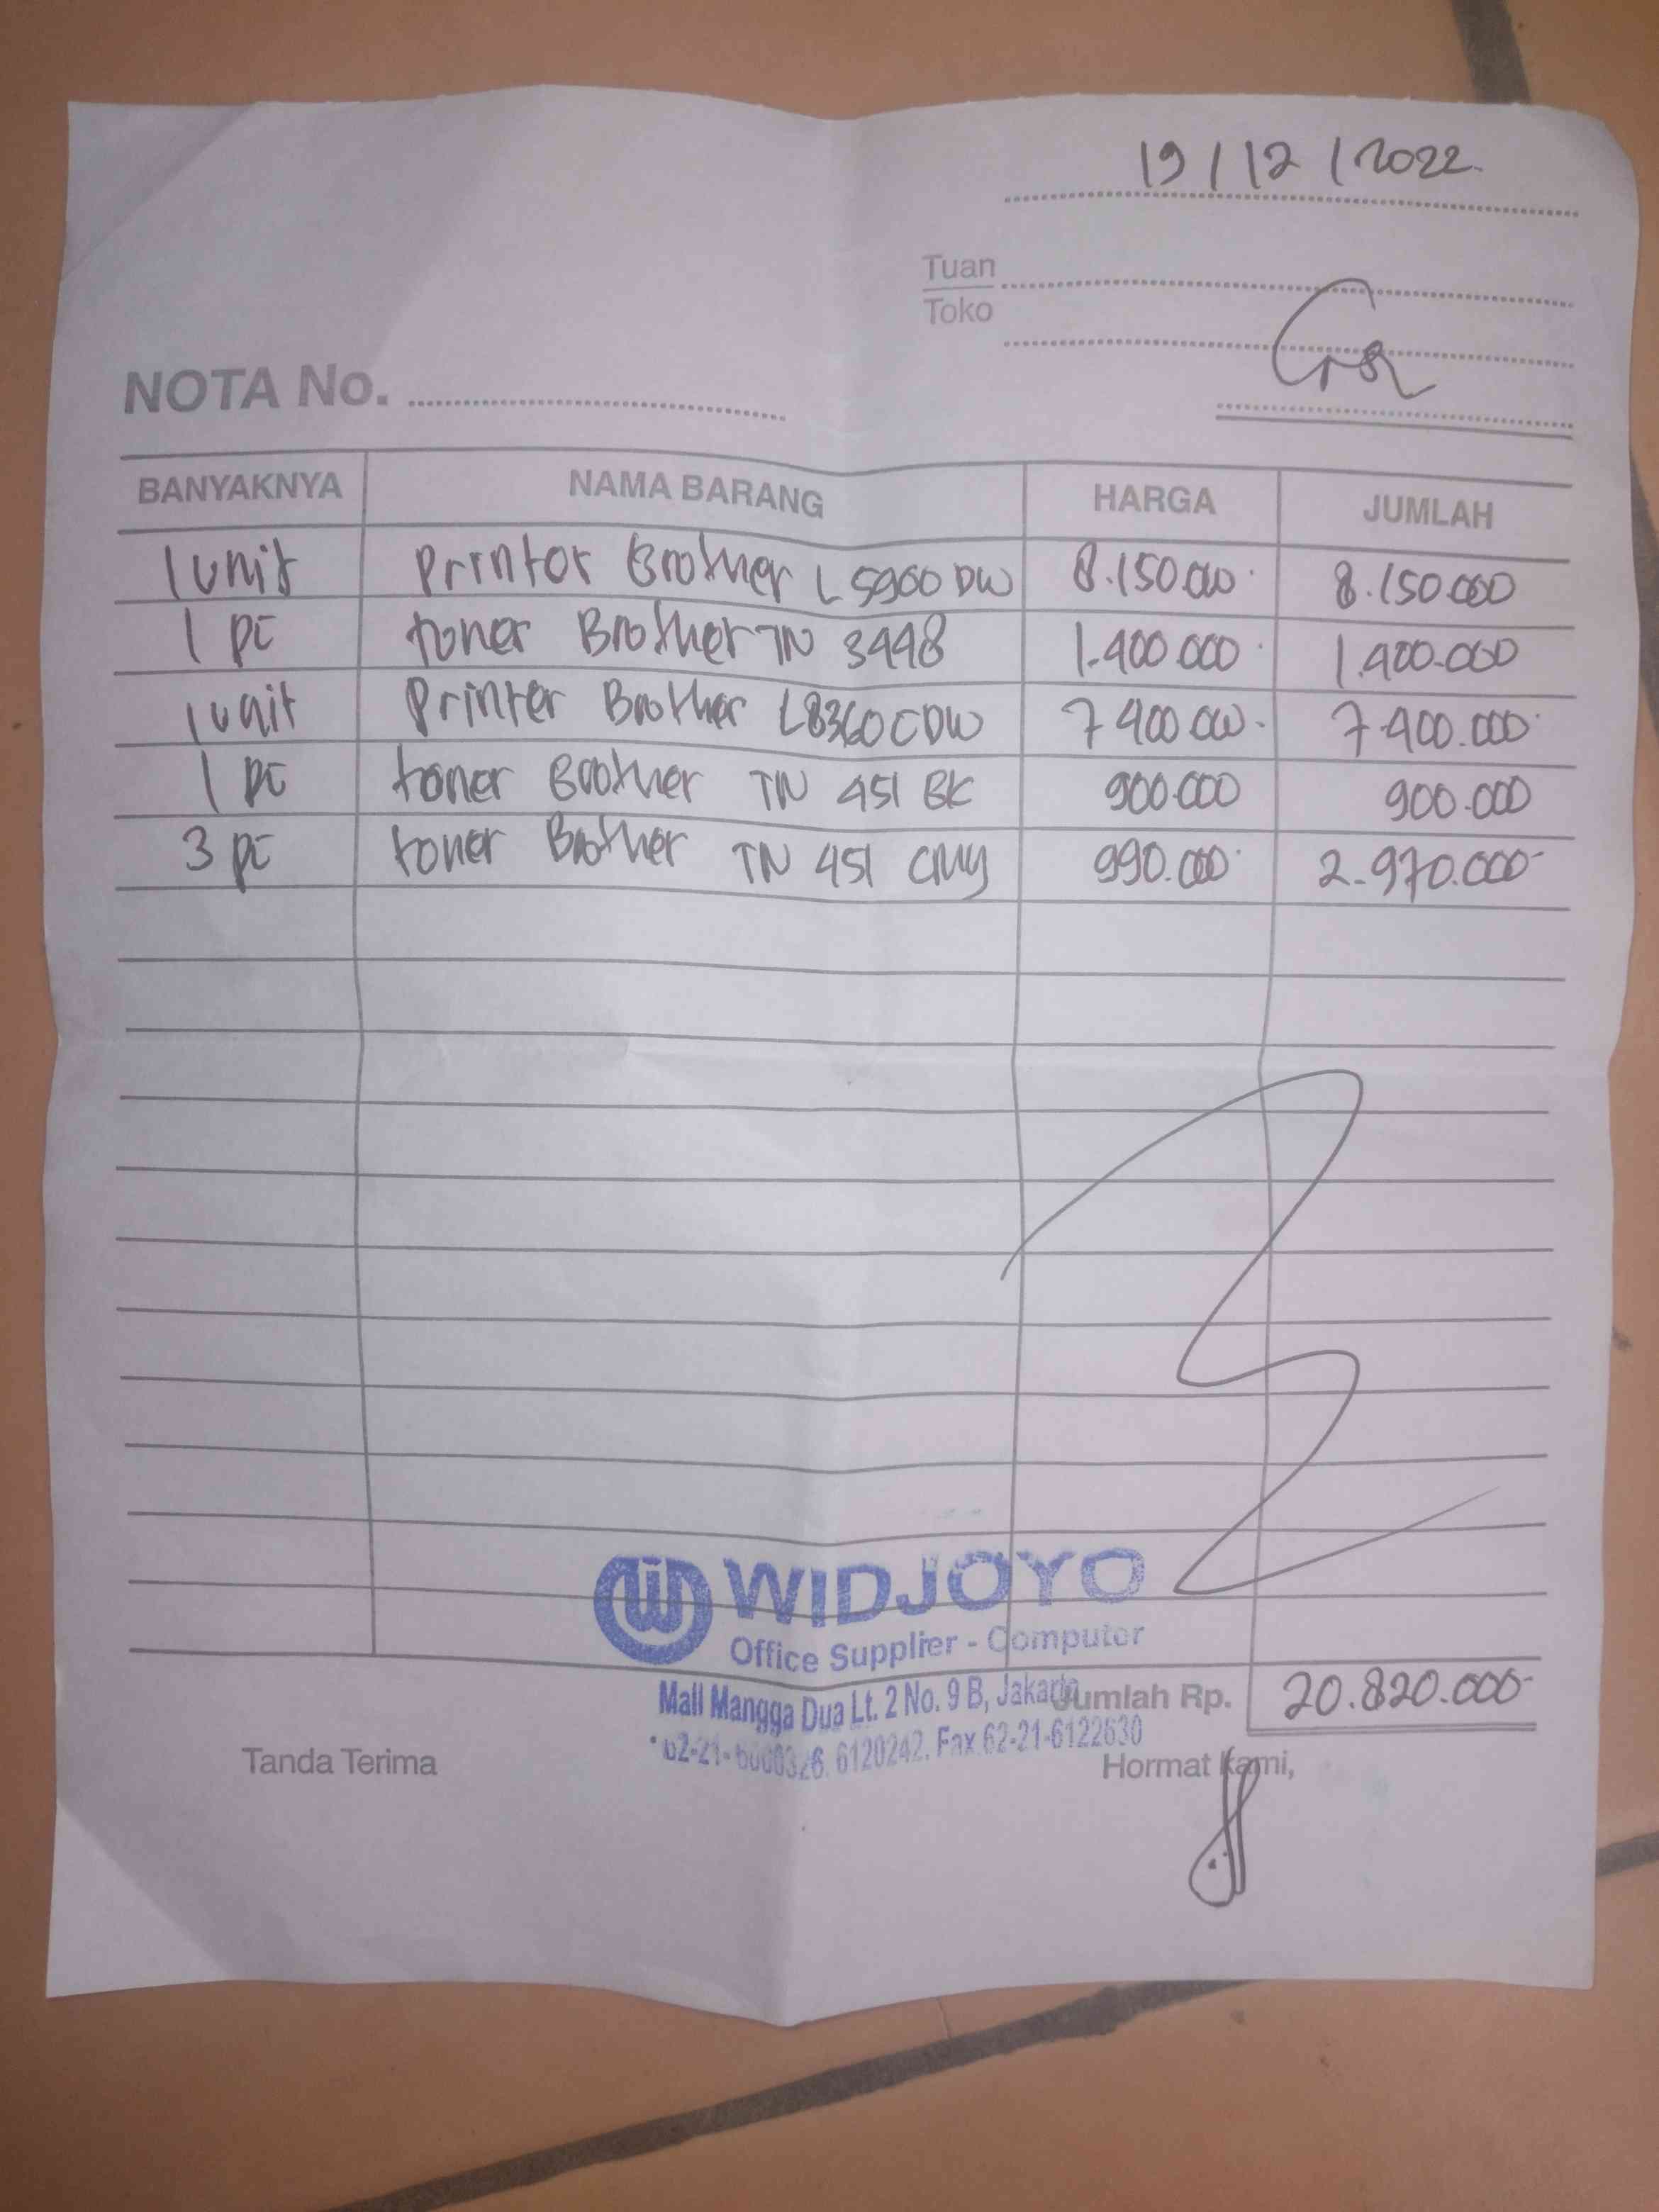 19/12/2022
Tuan
Toko
NOTA No.
BANYAKNYA NAMA BARANG HARGA JUMLAH
1 unit Printer Brother L5900DW 8.150.000 8.150.000
1 pc toner Brother TN 3448 1.400.000 1.400.000
1 unit Printer Brother L8360CDW 7.400.000 7.400.000
1 pc toner Brother TN 451 BK 900.000 900.000
3 pc toner Brother TN 451 CMY 990.000 2.970.000
WIDJOYO
Office Supplier - Computer
Mall Mangga Dua Lt. 2 No. 9 B, Jakarta
6120242. Fax 62-21-6122630
Jumlah Rp. 20.820.000
Tanda Terima Hormat kami,